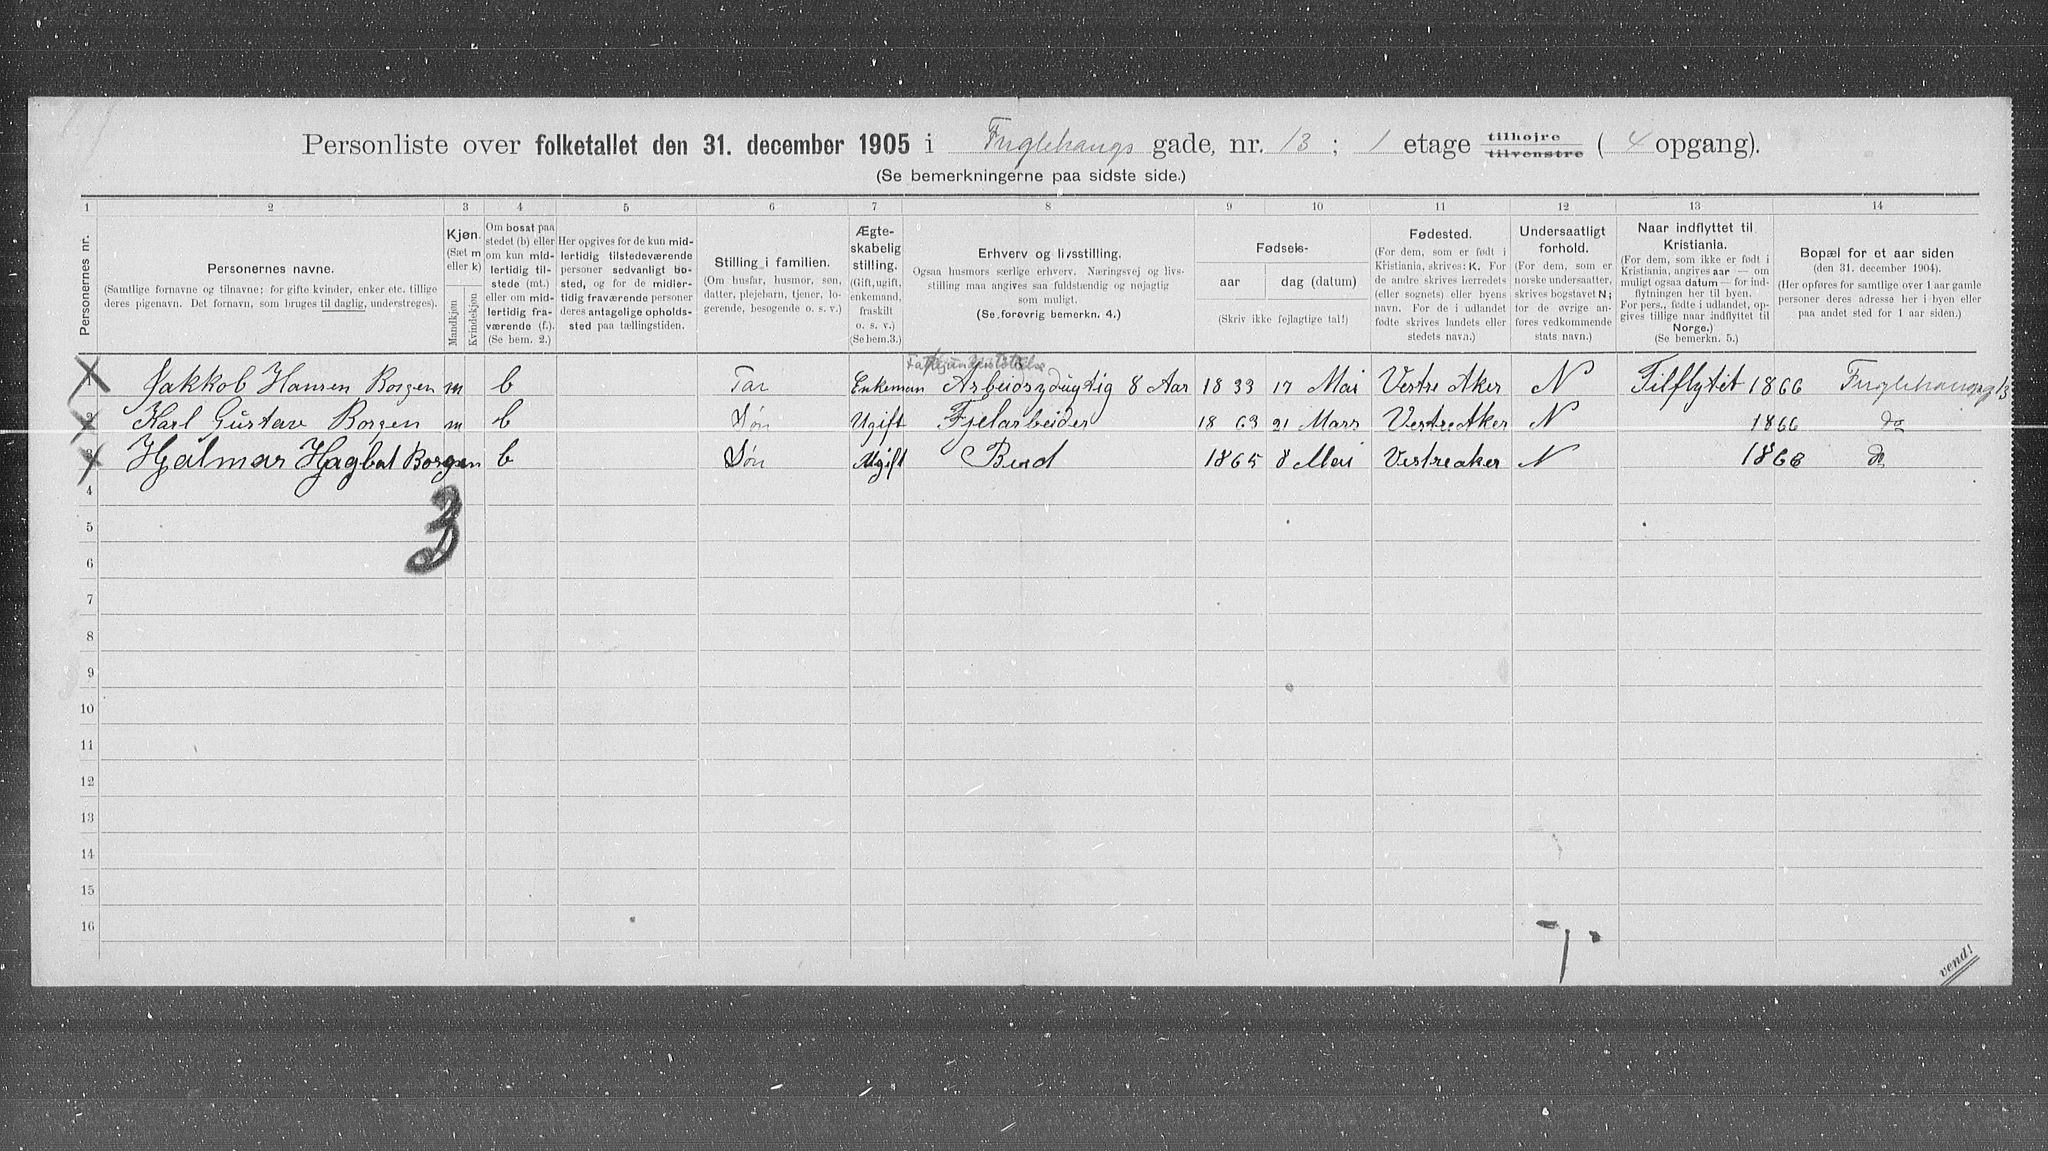 Personliste over folketallet den 31. december 1905 i Fuglehaugs gade, nr. 13 ; 1 etage tilhøjre tilvenstre ( 4 opgang).
(Se bemerkningerne paa sidste side.)
1 2 3 4 5 6 7 8 9 10 11 12 13 14
Personernes nr.
Personernes navne.
(Samtlige fornavne og tilnavne; for gifte kvinder, enker etc. tillige
deres pigenavn. Det fornavn, som bruges til daglig, understreges).
Kjøn.
(Sæt m
eller k)
Mandkjøn
Kvindekjøn
Om bosat paa
stedet (b) eller
om kun mid-
lertidig til-
stede (mt.)
eller om mid-
lertidig fra-
værende (f.).
(Se bem. 2.)
Her opgives for de kun mid-
lertidig tilstedeværende
personer sedvanligt bo-
sted, og for de midler-
tidig fraværende personer
deres antagelige opholds-
sted paa tællingstiden.
Stilling i familien.
(Om husfar, husmor, søn,
datter, plejebarn, tjener, lo-
gerende, besøgende o. s. v.)
Ægte-
skabelig
stilling.
(Gift, ugift,
enkemand,
fraskilt
o. s. v.)
(Se bem.3.)
Erhverv og livsstilling.
Ogsaa husmors særlige erhverv. Næringsvej og livs-
stilling maa angives saa fuldstændig og nøjagtig
som muligt.
(Se forøvrig bemerkn. 4.)
Fødsels-
aar
dag (datum)
(Skriv ikke fejlagtige tal!)
Fødested.
(For dem, som er født i
Kristiania, skrives: K. For
de andre skrives herredets
(eller sognets) eller byens
navn. For de i udlandet
fødte skrives landets eller
stedets navn.)
Undersaatligt
forhold.
(For dem, som er
norske undersaatter,
skrives bogstavet N;
for de øvrige an-
føres vedkommende
stats navn.)
Naar indflyttet til
Kristiania.
(For dem, som ikke er født i
Kristiania, angives aar — om
muligt ogsaa datum — for ind-
flytningen her til byen.
For pers., fødte i udlandet, op-
gives tillige naar indflyttet til
Norge.)
(Se bemerkn. 5.)
Bopæl for et aar siden
(den 31. december 1904).
(Her opføres for samtlige over 1 aar gamle
personer deres adresse her i byen eller
paa andet sted for 1 aar siden.)
1 Jakkob Hansen Borgen m b Far Enkeman Arbeidsydugtig 8 Aar 1833 17 Mai Vestre Aker N Tilflytet 1866 Fuglehaugsg 13
2 Karl Gustav Borgen m b Søn Ugift Fjelarbeider 1863 21 Mars Vestre Aker N 1866 do
3 Hjalmar Hagbat Borgen b Søn Ugift Bud 1865 8 Mai Vestreaker N 1866 do
3
4
5
6
7
8
9
10
11
12
13
14
15
16
vend!